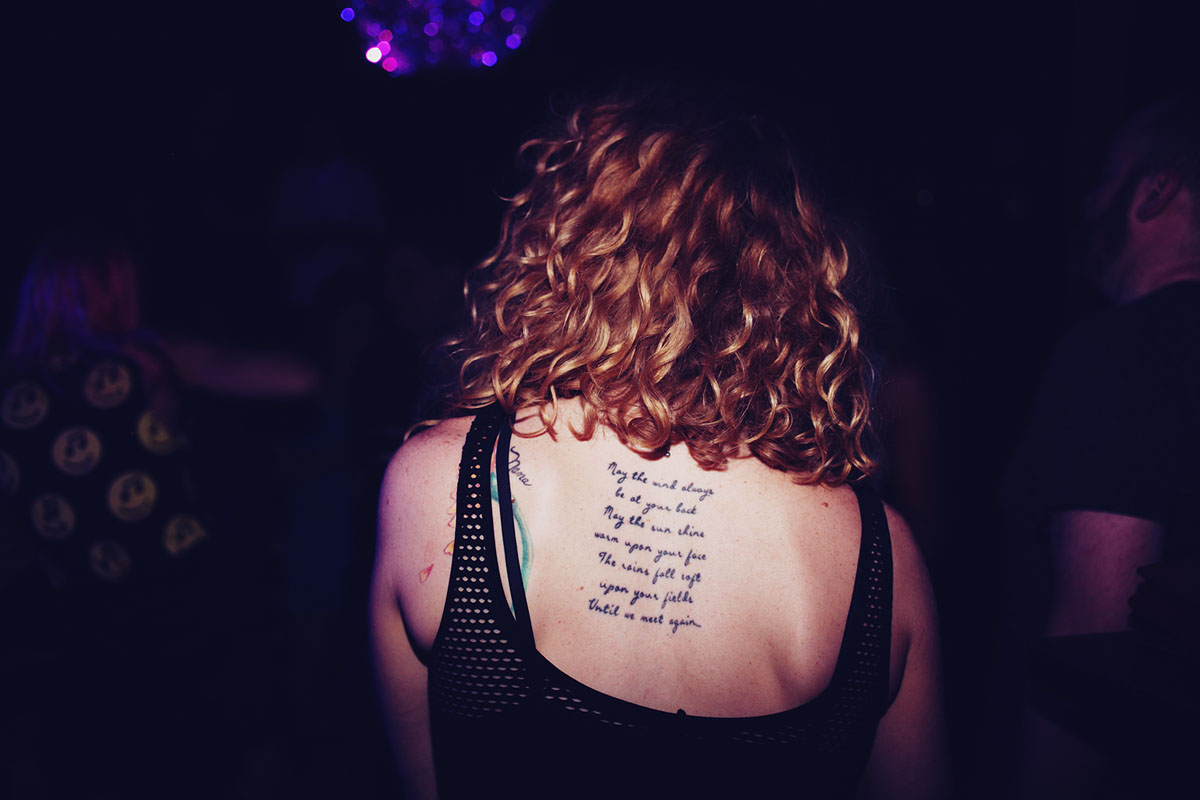 Nana
May the wind always
be at your back
May the sun shine
warm upon your face
The rains fall soft
upon your fields
Until we meet again